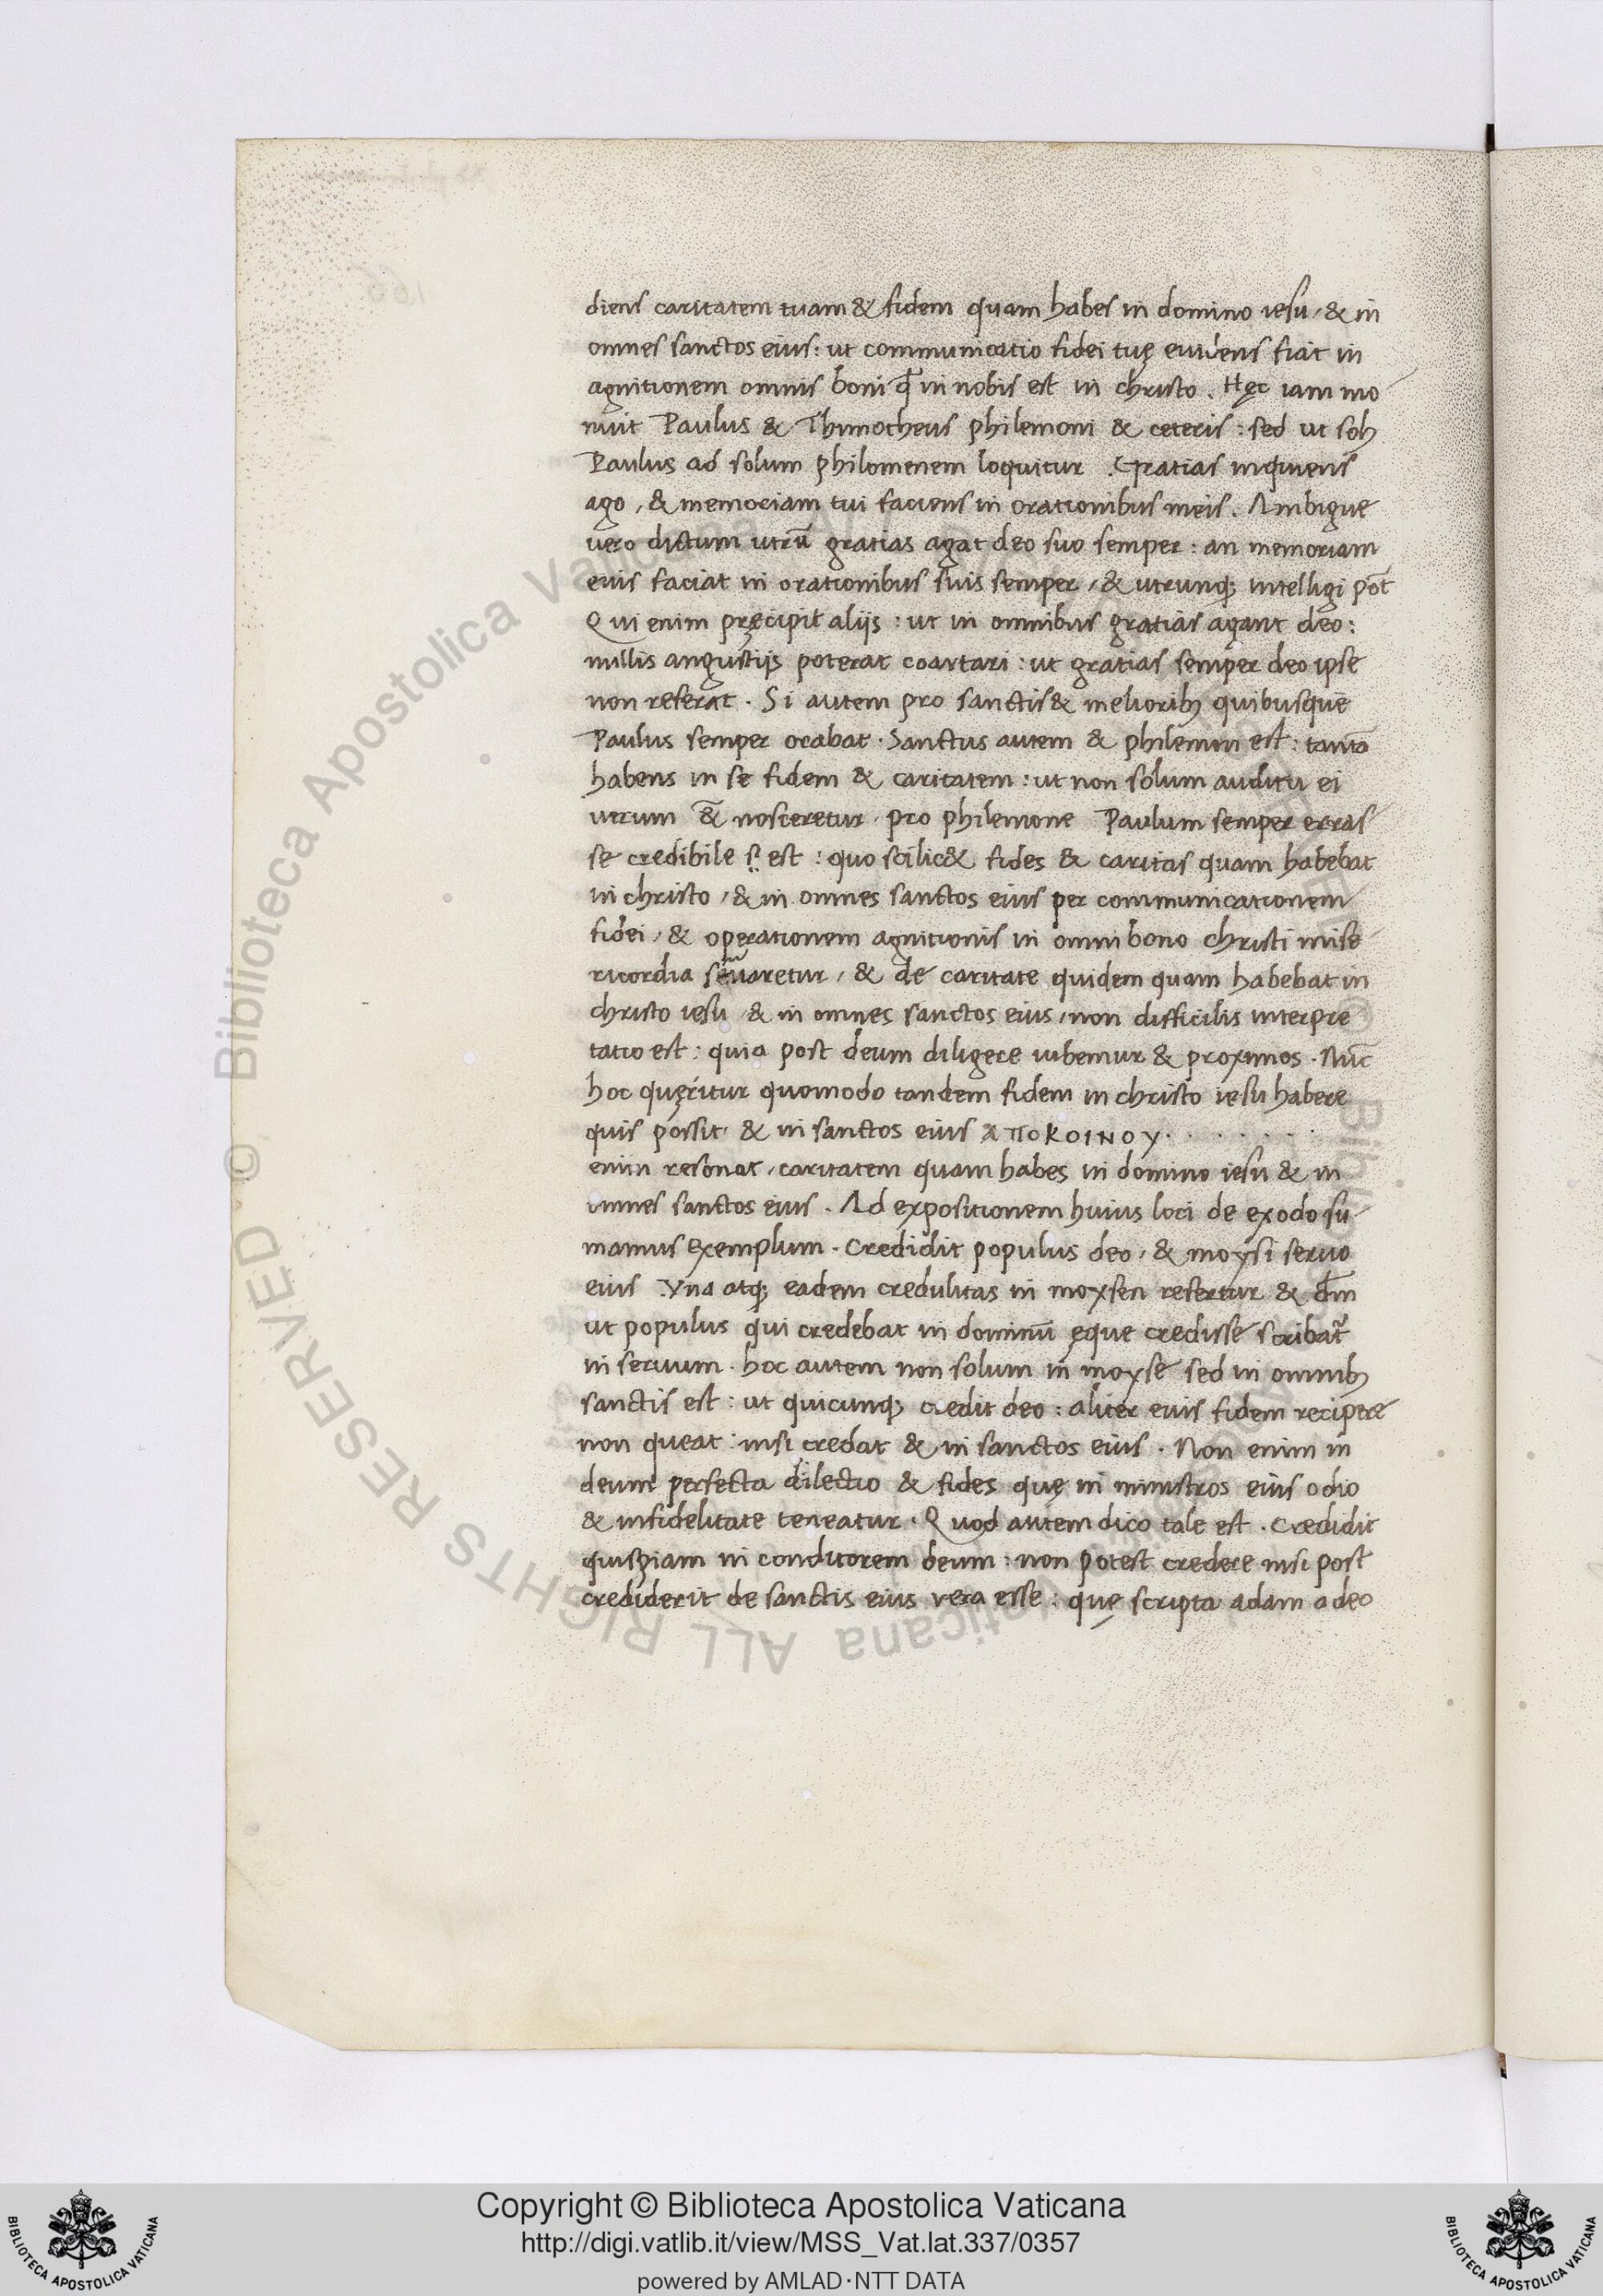 diens caritatem tuam & fidem quam habes in domino iesu, & in
omnes sanctos eius: ut communicatio fidei tuę euidens fiat in
agnitionem omnis boni ꝙ in nobis est in christo. Hęc iam mo
nuit Paulus & Thimotheus philemoni & ceteris: sed ut solꝫ
Paulus ad solum philomenem loquitur. Gratias inquiens
ago, & memoriam tui faciens in orationibus meis. Ambigue
uero dictum utrū gratias agat deo suo semper: an memoriam
euis faciat in orationibus suis semper, & utrunqꝫ intelligi pōt
Qui enim pręcipit alijs: ut in omnibus gratias agant deo:
nullis angustijs poterat coartari: ut gratias semper deo ipse
non referat. Si autem pro sanctis & melioribꝫ quibusque
Paulus semper orabat. Sanctus autem & philemon est: tantā
habens in se fidem & caritatem: ut non solum auditu ei
uerum &̄ nosceretur. pro philemone Paulum semper erras
se credibile est: quo scilic& fides & caritas quam habebat
in christo, & in omnes sanctos eius per communicationem
fidei, & operationem agnitionis in omni bono christi mise
ricordia seruaretur, & de caritate quidem quam habebat in
christo iesu, & in omnes sanctos eius, non difficilis interpre
tatio est: quia post deum diligere iubemur & proximos. Nūc
hoc quęritur quomodo tandem fidem in christo iesu habere
quis possit & in sanctos eius ΑΠΟΚΟΙΝΟΥ. . . . . . .
enim resonat, caritatem quam habes in domino iesu & in
omnes sanctos eius. Ad expositionem huius loci de exodo su
mamus exemplum. Credidit populus deo, & moysi seruo
eius. Vna atqꝫ eadem credulitas in moysen refertur & dm̄
ut populus qui credebat in dominū ęque credisse scribat᷑
in seruum. hoc autem non solum in moyse sed in omnibꝫ
sanctis est: ut quicunqꝫ credit deo: aliter euis fidem recipere
non queat: nisi credat & in sanctos eius. Non enim in
deum perfecta dilectio & fides quę in ministros eius odio
& infidelitate teneatur. Quod autem dico tale est. Credidit
quispiam in conditorem deum: non potest credere nisi post
crediderit de sanctis eius vera esse: quę scripta adam a deo
© Biblioteca Apostolica Vaticana ALL RIGHTS RESERVED
Copyright © Biblioteca Apostolica Vaticana
http://digi.vatlib.it/view/MSS_Vat.lat.337/0357
powered by AMLAD·NTT DATA
BIBLIOTECA APOSTOLICA VATICANA
BIBLIOTECA APOSTOLICA VATICANA